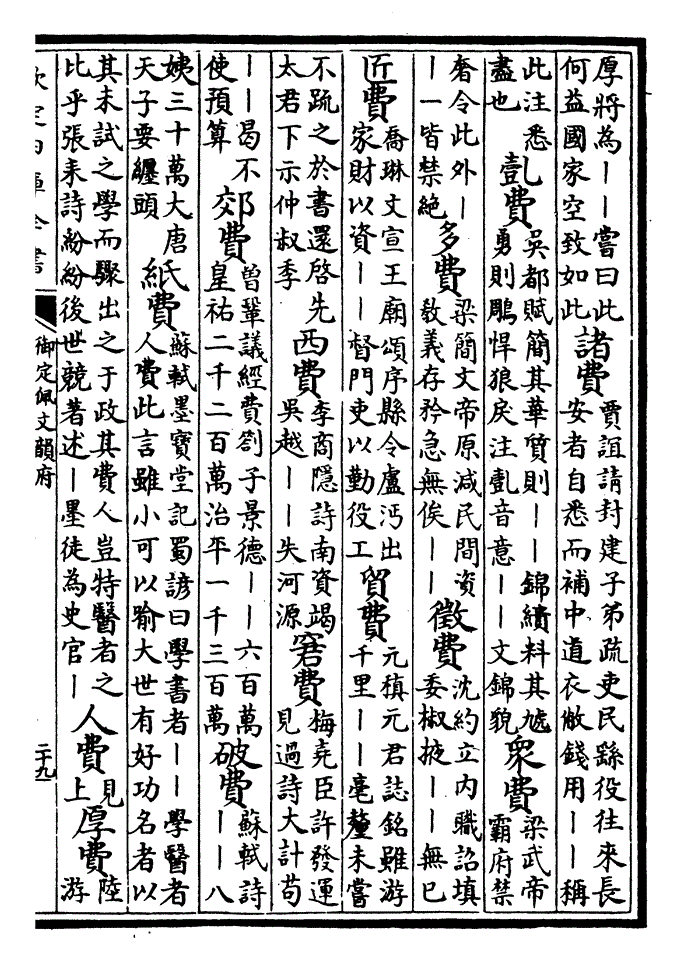 厚將為｜｜嘗曰此
何益國家空致如此
諸費
賈誼請封建子弟疏吏民繇役往來長
安者自悉而補中道衣敝錢用｜｜稱
此注悉
盡也
亄費
吳都賦簡其華質則｜｜錦繢料其虓
勇則鵰悍狼戾注亄音意｜｜文錦貌
衆費
梁武帝
霸府禁
奢令此外｜
｜一皆禁絶
多費
梁簡文帝原減民間資
教義存矜急無俟｜｜
徵費
沈約立内職詔填
委椒掖｜｜無已
匠費
喬琳文宣王廟頌序縣令盧沔出
家財以資｜｜督門吏以勤役工
貿費
元稹元君誌銘雖游
千里｜｜毫釐未嘗
不疏之於書還啓先
太君下示仲叔季
西費
李商隱詩南資竭
吳越｜｜失河源
窘費
梅堯臣許發運
見過詩大計苟
｜｜曷不
使預算
郊費
曾鞏議經費劄子景德｜｜六百萬
皇祐二千二百萬治平一千三百萬
破費
蘇軾詩
｜｜八
姨三十萬大唐
天子要纒頭
紙費
蘇軾墨寶堂記蜀諺曰學書者｜｜學醫者
人費此言雖小可以喻大世有好功名者以
其未試之學而驟出之于政其費人豈特醫者之
比乎張耒詩紛紛後世競著述｜墨徒為史官｜
人費
見
上
厚費
陸
游
欽定四庫全書
御定佩文韻府
二十九